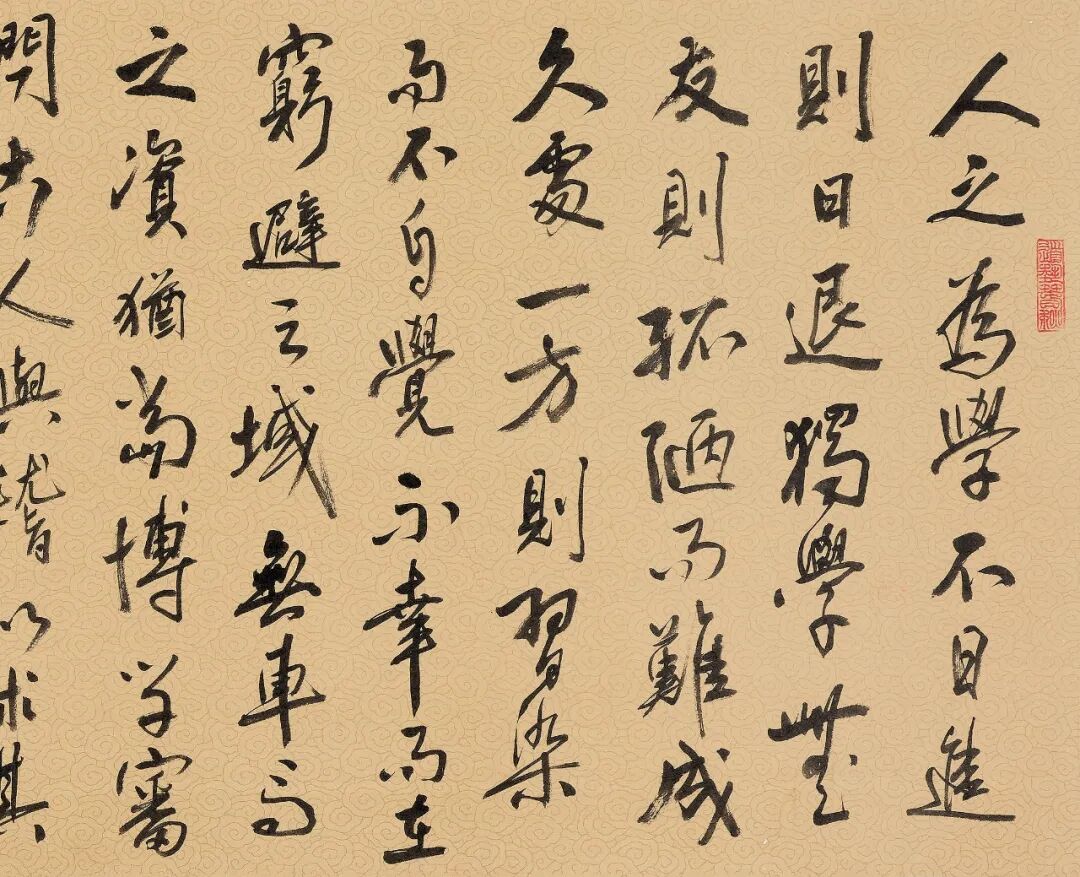 人之為學不日進
則日退獨學無
友則孤陋而難成
久處一方則習染
而不自覺不幸而在
窮避之域無車馬
之資猶當博学審
問古人與稽以求其